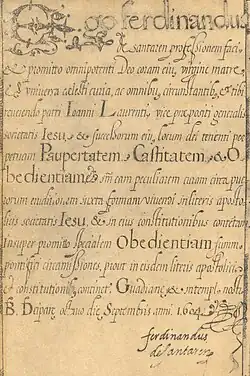 Ego ferdinandus
de santaren professionem facio,
& promitto omnipotenti Deo coram eius virgine matre,
& universa celesti curia, ac omnibus circunstantibus, & tibi
reverendo patri Ioanni Laurenti, vice præpositi generalis
societatis Iesu, & successorum eius, locum dei tenenti per
petuam Paupertatem, Castitatem, & O
bedientiam & secundum eam peculiarem curam circa pue
rorum eruditionem iuxta formam vivendi in literis aposto
licis societatis Iesu, & in eius constitutionibus contentam
Insuper promitto specialem Obedientiam summo
pontifici circa missiones, prout in eisdem literis apostolicis
& constitutionibus continetur. Guadiane & in templo nostro
B. Deiparæ octavo die Septembris anni 1604
ferdinandus
de santaren